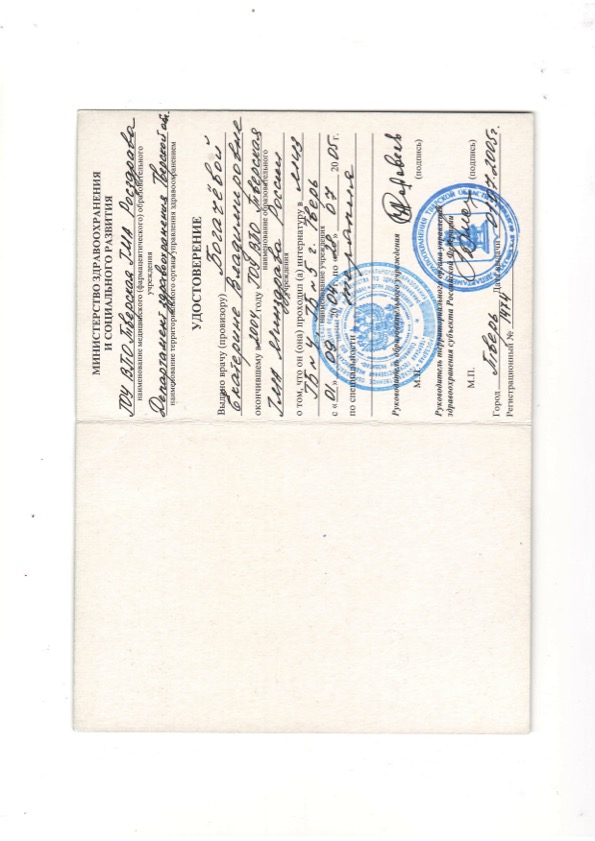 МИНИСТЕРСТВО ЗДРАВООХРАНЕНИЯ
И СОЦИАЛЬНОГО РАЗВИТИЯ
ГОУ ВПО Тверская ГМА Росздрава
наименование медицинского (фармацевтического) образовательного
учреждения
Департамент здравоохранения Тверской об.
наименование территориального органа управления здравоохранением
УДОСТОВЕРЕНИЕ
Выдано врачу (провизору) Богачёвой
Екатерине Владимировне
окончившему в 2004 году ГОУ ВПО Тверская
наименование образовательного
ГМА Минздрава России
учреждения
о том, что он (она) проходил (а) интернатуру в МУЗ
ГБ № 4, ГБ № 5 г. Тверь
наименование учреждения
с « 01 » 09 2004 по « 28 » 07 2005 г.
по специальности терапия
Руководитель образовательного учреждения
М.П. (подпись)
Руководитель территориального органа управления
здравоохранения субъекта Российской Федерации
М.П. (подпись)
Город Тверь Дата выдачи 07.2005г.
Регистрационный № 1474